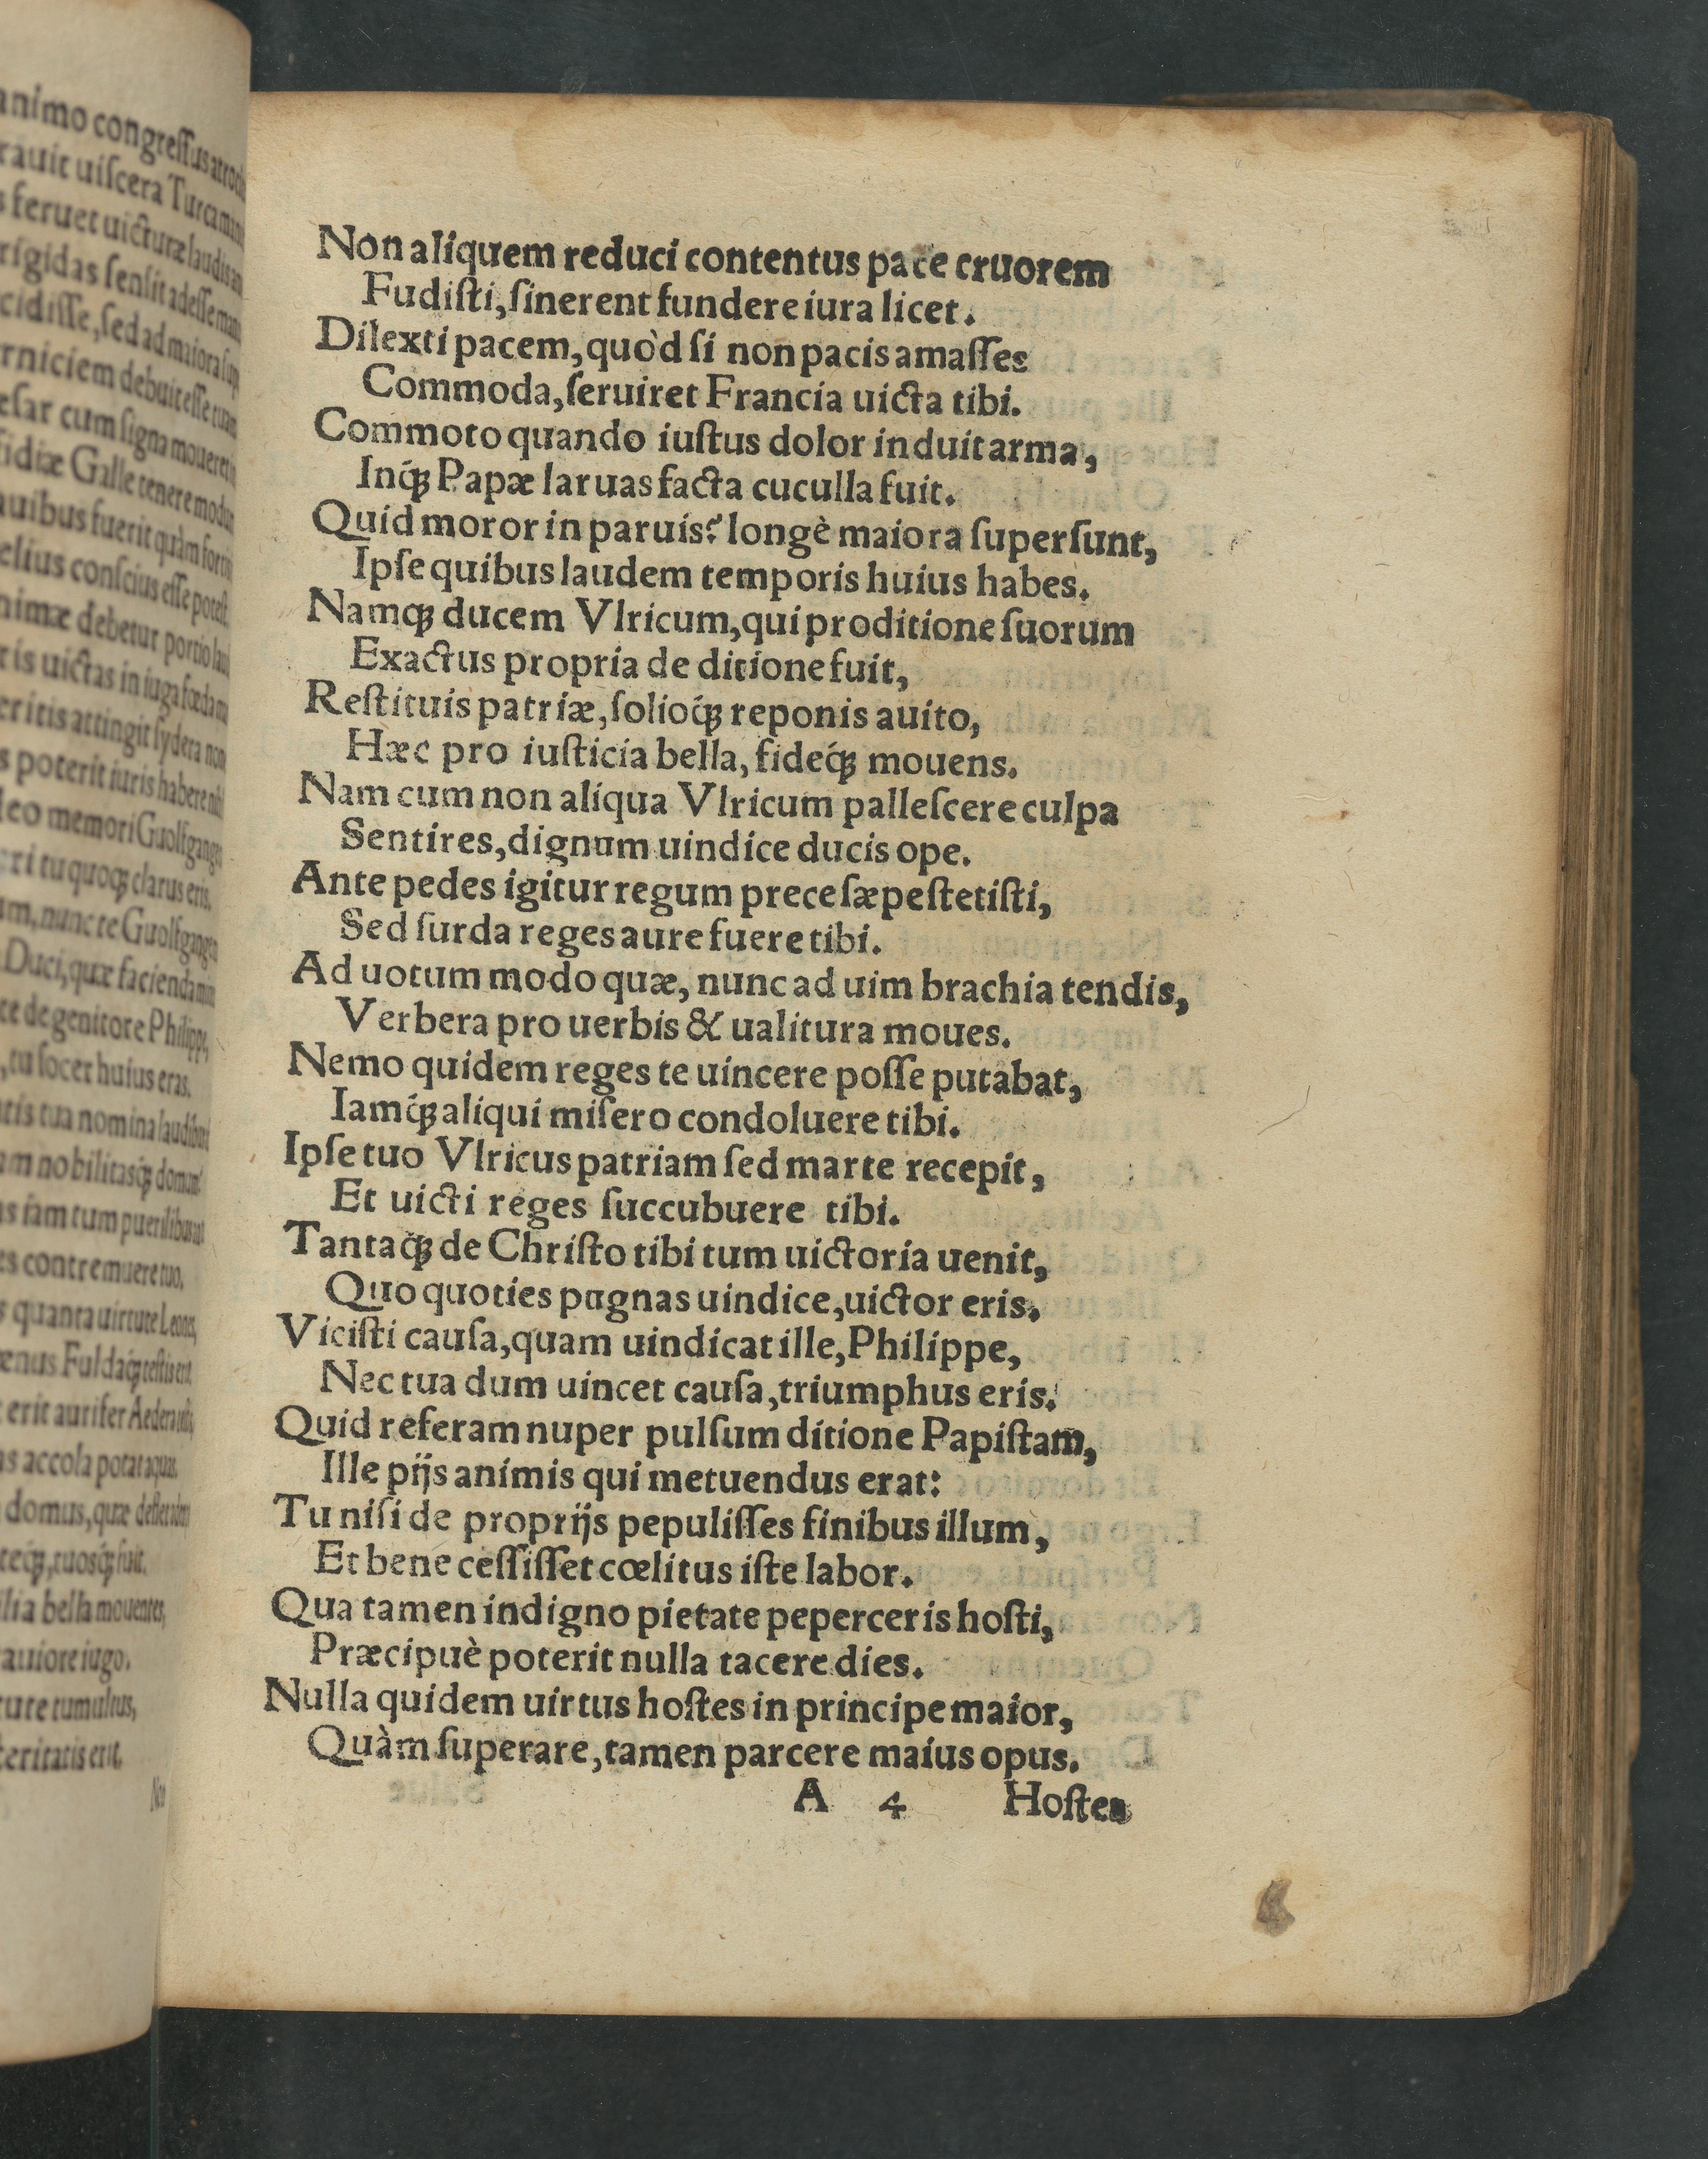 animo congreſſus
rauit uiſcera Turcam
s feruet uicturæ laudis
rigidas ſenſit adeſſe
cidiſſe, ſed ad maiora
rniciem debuit eſſe tuam
eſar cum ſigna moueret
fidiæ Galle tenere
auibus fuerit quàm
elius conſcius eſſe poteſt
nimæ debetur portio
ris uictas in iuga
eritis attingit ſydera non
s poterit iuris habere
leo memori
eri tu quoqꝫ clarus eris.
um, nunc te
Duci, quæ facienda
te de genitore Philippe,
, tu ſocer huius eras.
atis tua nomina
am nobilitasqꝫ́
as iam tum puerilibus
es contremuere tuo.
s quanta uirtute Leones,
enus Fuldaqꝫ́ teſtis erit
erit aurifer
as accola potat aquas.
domus, quæ
teqꝫ́, tuosqꝫ́ fuit.
ilia bella mouentes,
auiore iugo.
tute tumultus,
teritatis erit.
Non
Non aliquem reduci contentus pace cruorem
Fudiſti, ſinerent fundere iura licet.
Dilexti pacem, quòd ſi non pacis amaſſes
Commoda, ſeruiret Francia uicta tibi.
Commoto quando iuſtus dolor induit arma,
Inqꝫ́ Papæ laruas facta cuculla fuit.
Quid moror in paruis? longè maiora ſuperſunt,
Ipſe quibus laudem temporis huius habes.
Namqꝫ ducem Vlricum, qui proditione ſuorum
Exactus propria de ditione fuit,
Reſtituis patriæ, ſolioqꝫ́ reponis auito,
Hæc pro iuſticia bella, fideqꝫ́ mouens.
Nam cum non aliqua Vlricum palleſcere culpa
Sentires, dignum uindice ducis ope.
Ante pedes igitur regum prece ſæpe ſtetiſti,
Sed ſurda reges aure fuere tibi.
Ad uotum modo quæ, nunc ad uim brachia tendis,
Verbera pro uerbis & ualitura moues.
Nemo quidem reges te uincere poſſe putabat,
Iamqꝫ́ aliqui miſero condoluere tibi.
Ipſe tuo Vlricus patriam ſed marte recepit,
Et uicti reges ſuccubuere tibi.
Tantaqꝫ́ de Chriſto tibi tum uictoria uenit,
Quo quoties pugnas uindice, uictor eris.
Viciſti cauſa, quam uindicat ille, Philippe,
Nec tua dum uincet cauſa, triumphus eris.
Quid referam nuper pulſum ditione Papiſtam,
Ille pijs animis qui metuendus erat:
Tu niſi de proprijs pepuliſſes finibus illum,
Et bene ceſſiſſet cœlitus iſte labor.
Qua tamen indigno pietate peperceris hoſti,
Præcipuè poterit nulla tacere dies.
Nulla quidem uirtus hoſtes in principe maior,
Quàm ſuperare, tamen parcere maius opus.
A 4 Hoſtes